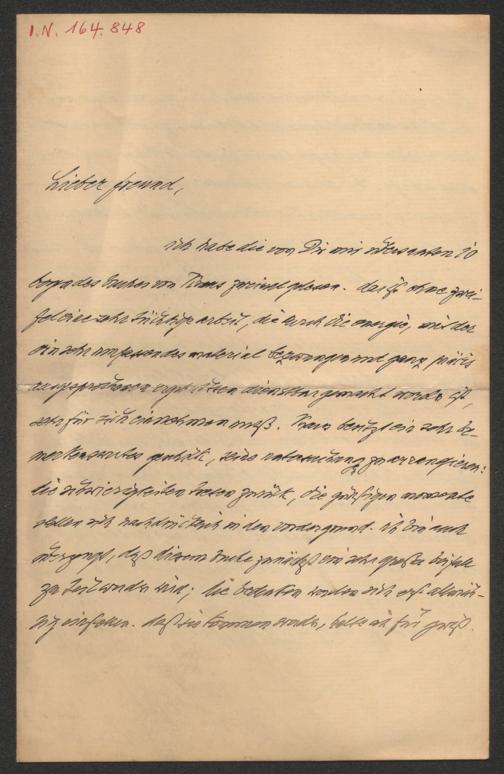 I.N. 164.848
Lieber freund,
ich habe die von Dir mir übersanten 20
bogen des buches von Kraus zweimal gelesen. das ist ohne zwei-
fel eine sehr tüchtige arbeit, die durch die energie, mit der
ein sehr umfassendes material bezwungen und ganz präcis
ausgesprochenen dienstbar gemacht worden ist,
sehr für sich einnehmen muß. Kraus besitzt ein sehr be-
merkenswertes geschick, seine untersuchung zu arrangieren:
die schwierigkeiten treten zurück, die günstigen momente
stellen sich nachdrücklich in den vordergrund. ich bin auch
überzeugt, daß diesem buche zunächst ein sehr großer beifall
zu teil werden wird; die bedenken werden sich erst allmäh-
lig einstellen. daß sie kommen werden, halte ich für gewiß.